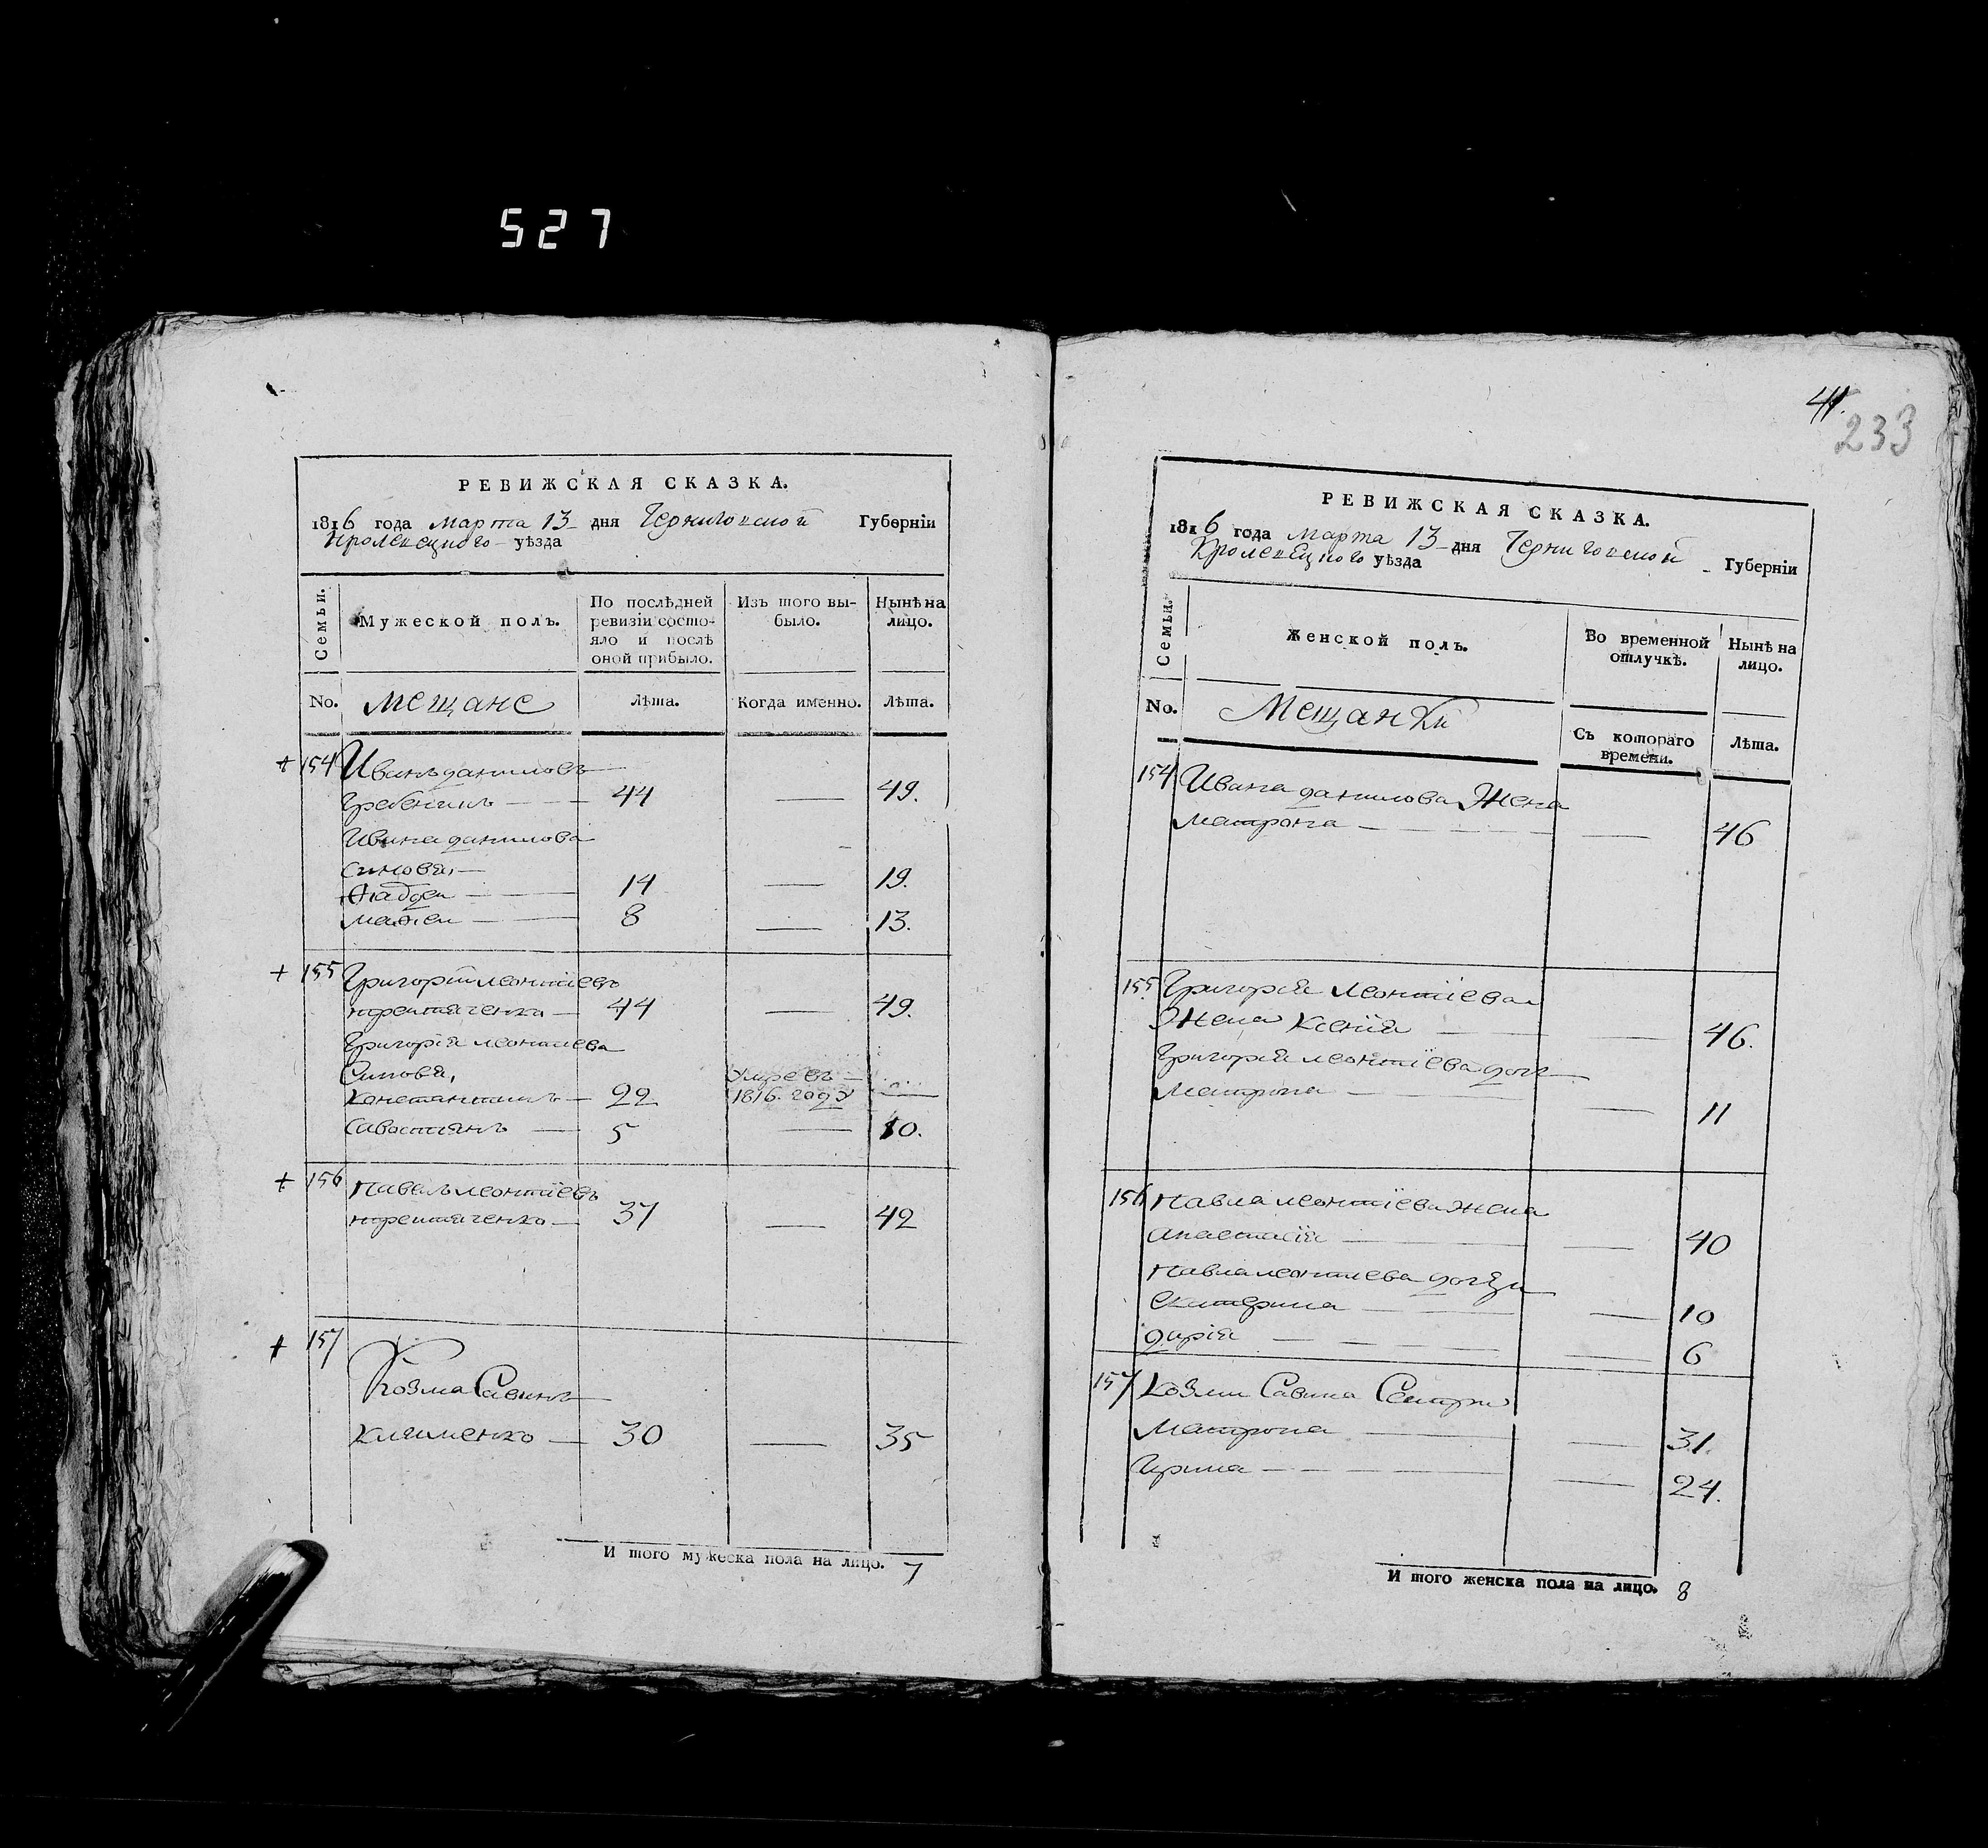 527
РЕВИЖСКАЯ СКАЗКА.
1816 года марта 13 дня Черниговской Губерніи
Кролевецкого уѣзда
Семьи.
Мужеской полъ.
По послѣдней ревизіи состояло и послѣ оной прибыло.
Изъ того выбыло.
Нынѣ на лицо.
No. мещане Лѣта. Когда именно. Лѣта.
+ 154 Иванъ даниловъ
гребеникъ — 44 — 49.
Ивана данилова
синовя,
14 — 19.
8 — 13.
+ 155 Григорій леонтіевъ
44 — 49.
Григорія леонтиева
Синовя,
Константинъ — 22 Умре въ 1816. годУ —
Савостиянъ — 5 — 10.
+ 156 Павелъ леонтіевъ
37 — 42
+ 157
Козма Савинъ
клименко — 30 — 35
И того мужеска пола на лицо. 7
41.
233
РЕВИЖСКАЯ СКАЗКА.
1816 года марта 13 дня Черниговской Губерніи
Кролевецкого уѣзда
Семьи.
Женской полъ.
Во временной отлучкѣ.
Нынѣ на лицо.
No. Мещанки Съ котораго времени. Лѣта.
154 Ивана данилова Жена
матрона — — 46
155. Григорія леонтіева
Жена Ксенія — — 46.
Григорія леонтіева доч
матрона — — 11
156 Павла леонтіева жена
анастасія — — 40
Павла леонтиева дочери
екатерина — — 10
дарія — — 6
157 козми Савина Сестри
матрона — — 31.
Ирина — — 24.
И того женска пола на лицо. 8